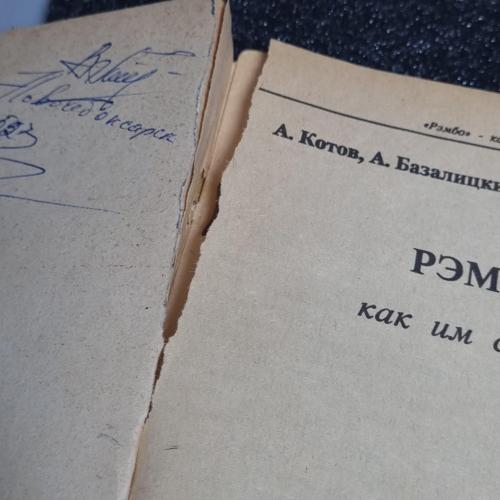 Новочебоксарск
«Рэмбо» - ка
А. Котов, А. Базалицки
РЭМ
как им с